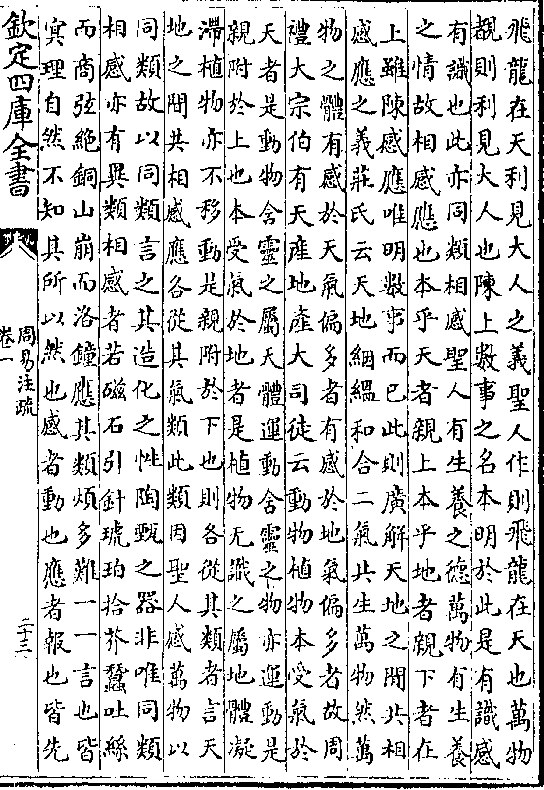 飛龍在天利見大人之義聖人作則飛龍在天也萬物
覩則利見大人也陳上數事之名本明於此是有識感
有識也此亦同類相感聖人有生養之德萬物有生養
之情故相感應也本乎天者親上本乎地者親下者在
上雖陳感應唯明數事而已此則廣解天地之間共相
感應之義莊氏云天地絪縕和合二氣共生萬物然萬
物之體有感於天氣偏多者有感於地氣偏多者故周
禮大宗伯有天產地產大司徒云動物植物本受氣於
天者是動物含靈之屬天體運動含靈之物亦運動是
親附於上也本受氣於地者是植物无識之屬地體凝
滯植物亦不移動是親附於下也則各從其類者言天
地之間共相感應各從其氣類此類因聖人感萬物以
同類故以同類言之其造化之性陶甄之器非唯同類
相感亦有異類相感者若磁石引針琥珀拾芥蠶吐絲
而商弦絶銅山崩而洛鐘應其類煩多難一一言也皆
冥理自然不知其所以然也感者動也應者報也皆先
欽定四庫全書
周易注疏
卷一
二十三